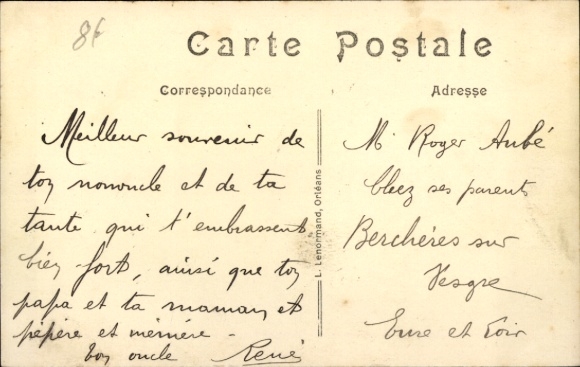 86
Carte Postale
Correspondance
Adresse
Meilleur souvenir de
ton nononcle et de ta
tante qui t'embrassent
bien fort, ainsi que ton
papa et ta maman et
pépère et mémère -
Ton oncle René
L. Lenormand, Orléans
Mr Roger Aubé
chez ses parents
Berchères sur
Vesgre
Eure et Loir